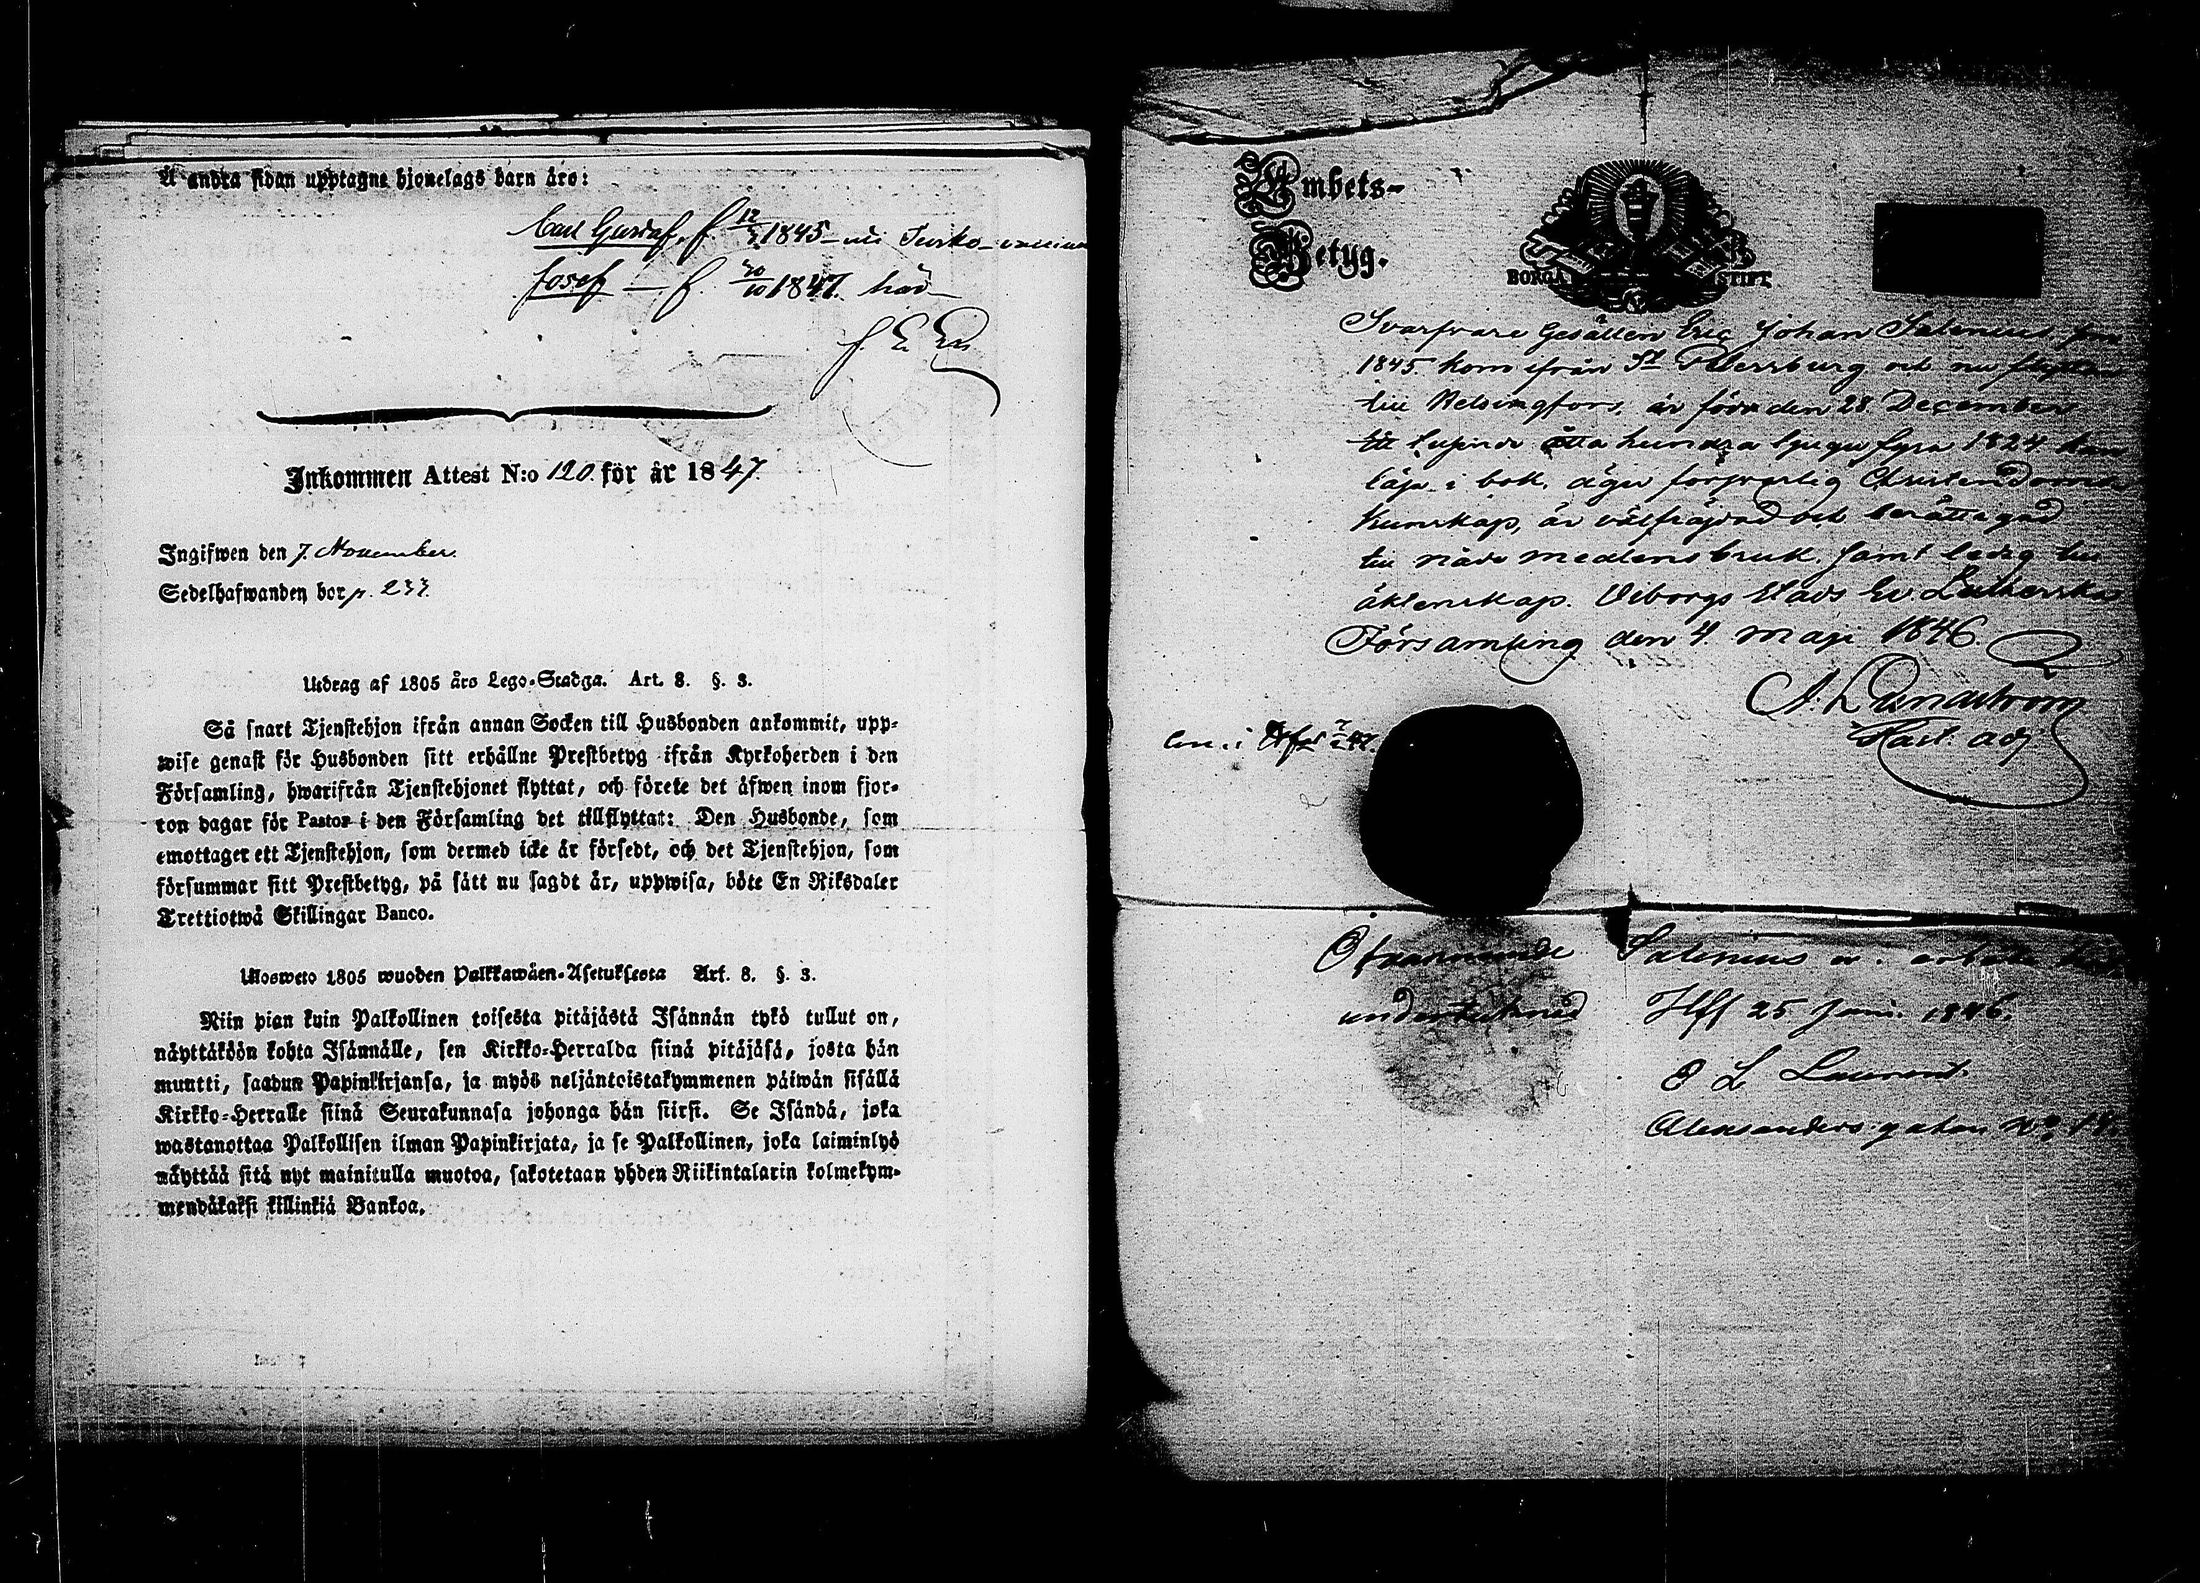 Å andra sidan upptagne hjonelags barn äro:
Carl Gustaf, f 12/3 1845 – uti Turko –
Josef — f. 20/10 1847. här –
Inkommen Attest N:o 120. för år 1847.
Ingifwen den 7. November.
Sedelhafwanden bor p. 233.
Utdrag af 1805 års Lego-Stadga. Art. 8. §. 3.
Så snart Tjenstehjon ifrån annan Socken till Husbonden ankommit, upp-
wise genast för Husbonden sitt erhållne Prestbetyg ifrån Kyrkoherden i den
Församling, hwarifrån Tjenstehjonet flyttat, och förete det äfwen inom fjor-
ton dagar för Pastor i den Församling det tillflyttat: Den Husbonde, som
emottager ett Tjenstehjon, som dermed icke är försedt, och det Tjenstehjon, som
försummar sitt Prestbetyg, på sätt nu sagdt är, uppwisa, böte En Riksdaler
Trettiotwå Skillingar Banco.
Ulosweto 1805 wuoden Palkkawäen-Asetuksesta Art. 8. §. 3.
Niin pian kuin Palkollinen toisesta pitäjästä Isännän tykö tullut on,
näyttäköön kohta Isännälle, sen Kirkko-Herralda siinä pitäjäsä, josta hän
muutti, saadun Papinkirjansa, ja myös neljäntoistakymmenen päiwän sisällä
Kirkko-Herralle siinä Seurakunnasa johonga hän siirsi. Se Isändä, joka
wastanottaa Palkollisen ilman Papinkirjata, ja se Palkollinen, joka laiminlyö
näyttää sitä nyt mainitulla muotoa, sakotetaan yhden Riikintalarin kolmekym-
mendäkaksi killinkiä Bankoa.
Embets-
Betyg.
BORGÅ STIFT
Svarfvare Gesällen Eric Johan Salenius, som
1845 kom ifrån St Petersburg och nu flyttar
till Helsingfors, är född den 28 December
Ett tusende åtta hundra tjugu fyra 1824 kan
läsa i bok, äger försvarlig Christendoms
kunskap, är välfräjdad och berättigad
till nåde medlens bruk, samt ledig till
äktenskap. Viborgs Stads Ev. Lutherska
Församling den 4. Maji 1846.
A. Lundström
adj
Ofvannämnde Salenius
undertecknad Hfs 25 Juni 1846.
O L Laurent
Alexanders gatan No